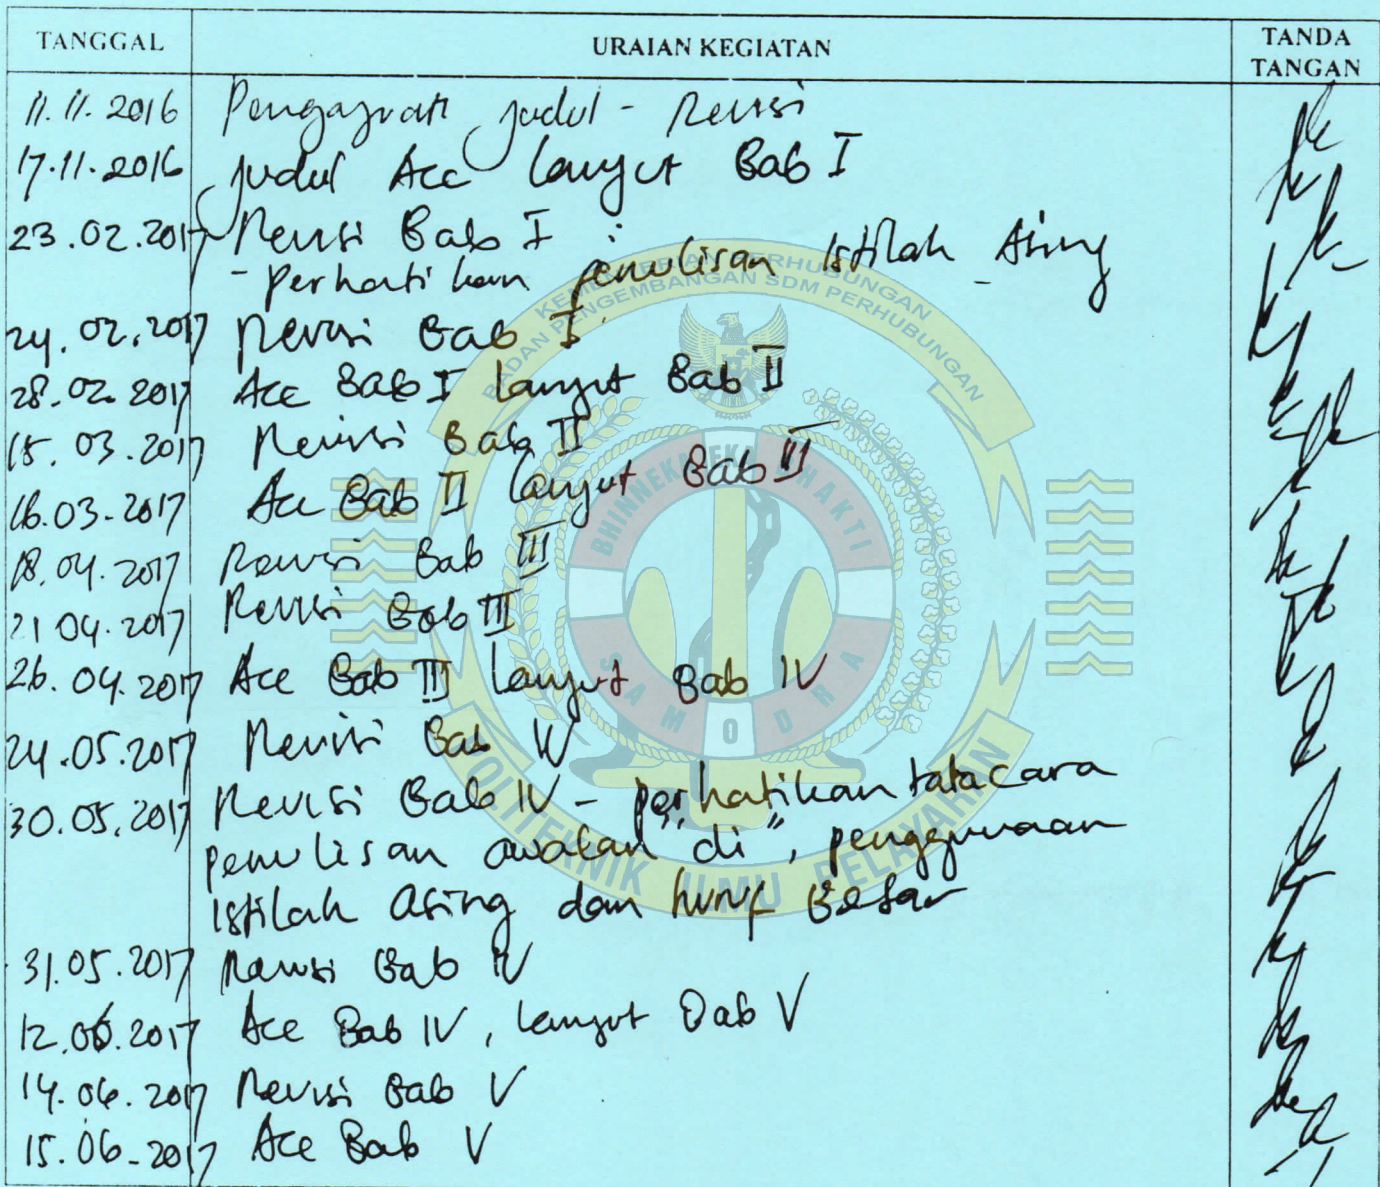 TANGGAL URAIAN KEGIATAN TANDA TANGAN
11.11.2016 Pengajuan judul - Revisi
17.11.2016 judul Acc lanjut Bab I
23.02.2017 Revisi Bab I :
- perhatikan penulisan Istilah Asing
24.02.2017 Revisi Bab I
28.02.2017 Acc Bab I lanjut Bab II
15.03.2017 Revisi Bab II
16.03.2017 Acc Bab II lanjut Bab III
18.04.2017 Revisi Bab III
21 04.2017 Revisi Bab III
26.04.2017 Acc Bab III lanjut Bab IV
24.05.2017 Revisi Bab IV
30.05.2017 Revisi Bab IV - perhatikan tatacara
penulisan awalan "di", penggunaan
Istilah asing dan huruf Besar
31.05.2017 Revisi Bab IV
12.06.2017 Acc Bab IV, lanjut Bab V
14.06.2017 Revisi Bab V
15.06-2017 Acc Bab V
KEMENTERIAN PERHUBUNGAN
BADAN PENGEMBANGAN SDM PERHUBUNGAN
BHINNEKA EKA BHAKTI
SAMODRA
POLITEKNIK ILMU PELAYARAN